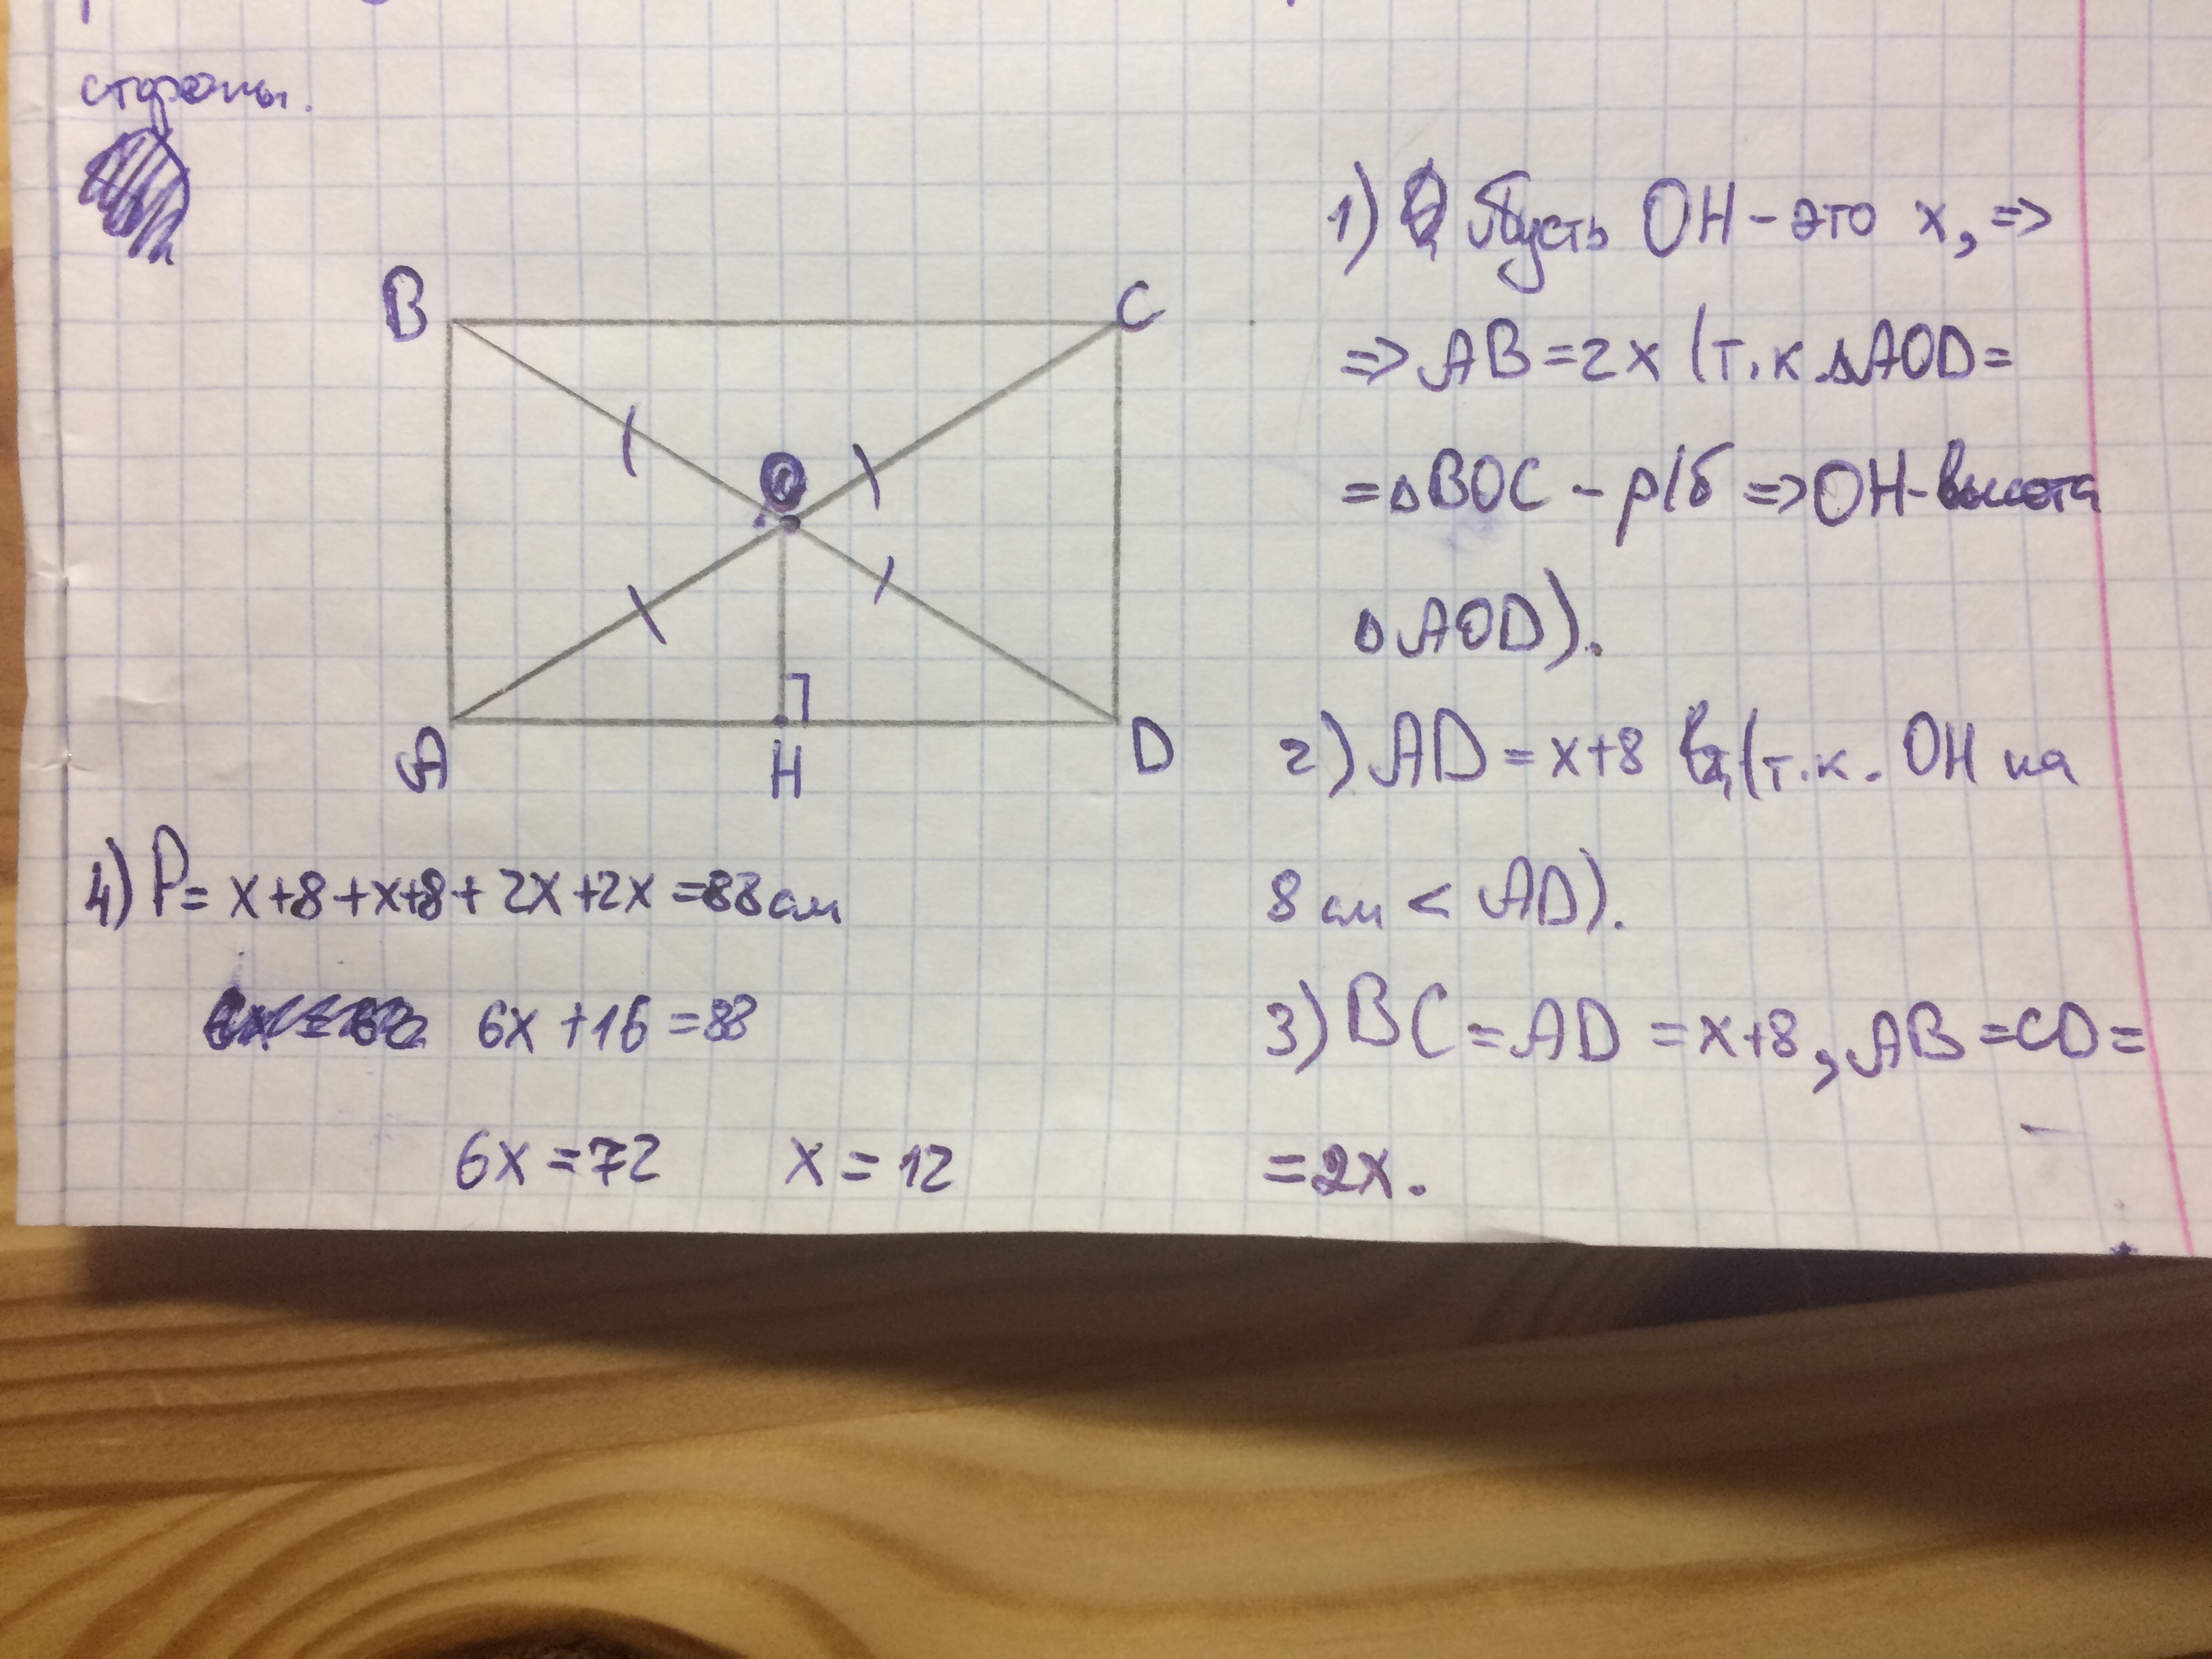 стороны.
B
C
O
A
H
D
1) Пусть OH - это x, =>
=> AB = 2x (т.к. △AOD =
= △BOC - р/б => OH - высота
△AOD).
2) AD = x+8 (т.к. OH на
8 см < AD).
3) BC = AD = x+8, AB = CD =
= 2x.
4) P = x+8+x+8+2x+2x = 88 см
6x+16 = 88
6x = 72 x = 12